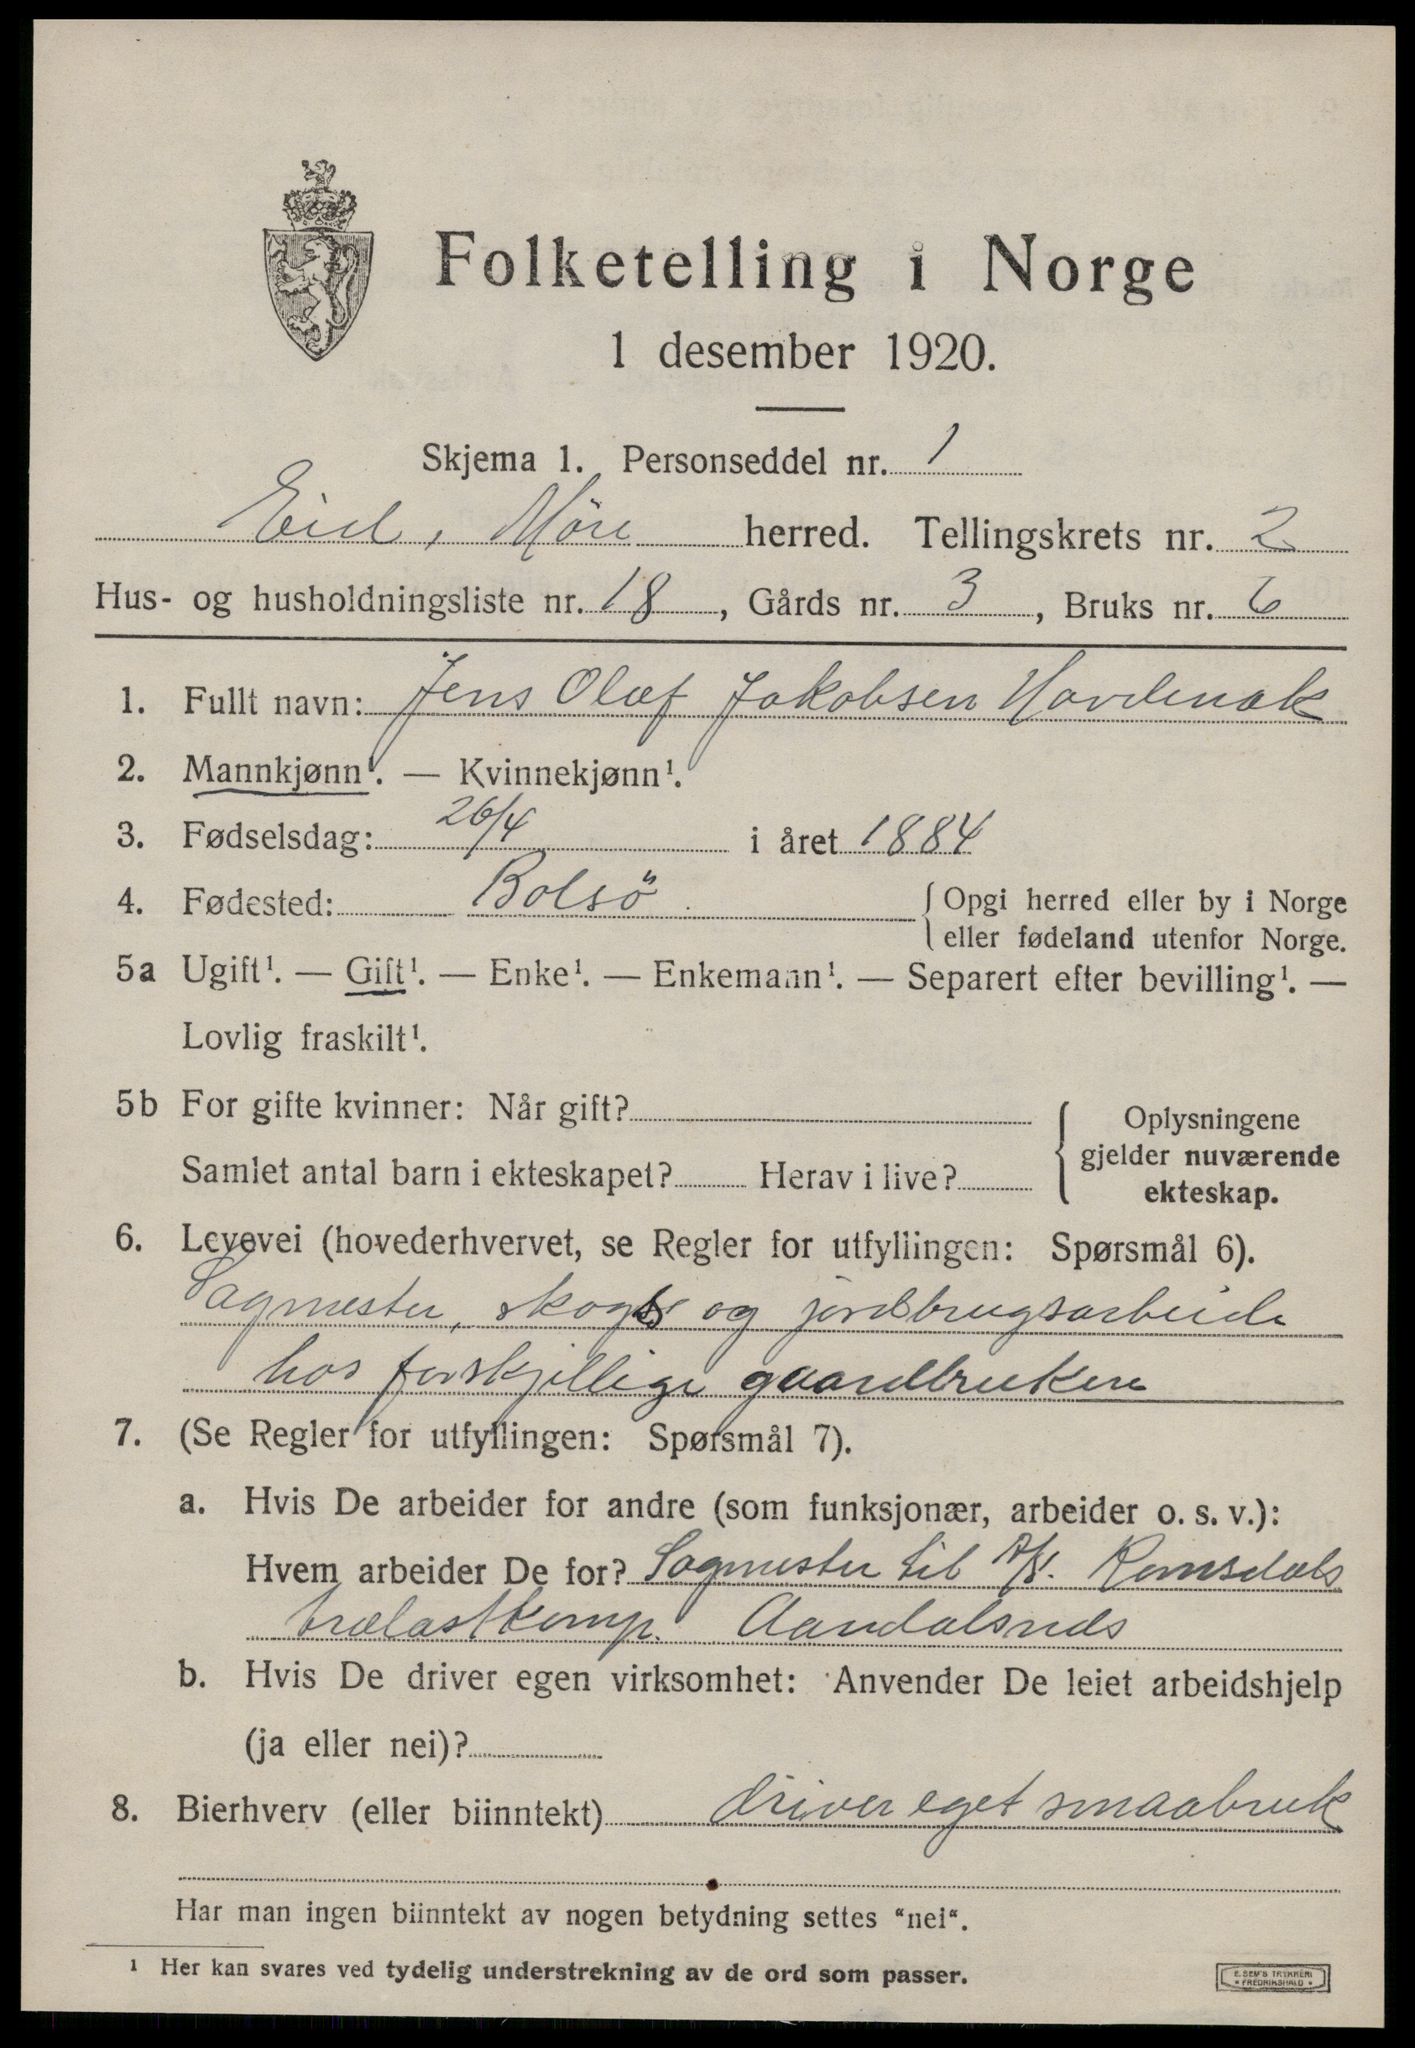 Folketelling i Norge
1 desember 1920.
Skjema 1. Personseddel nr. 1
Eid, Möre herred. Tellingskrets nr. 2
Hus- og husholdningsliste nr. 18, Gårds nr. 3, Bruks nr. 6
1. Fullt navn: Jens Olaf Jakobsen Hovdenak
2. Mannkjønn¹. — Kvinnekjønn¹.
3. Fødselsdag: 26/4 i året 1884
4. Fødested: Bolsö
{ Opgi herred eller by i Norge
eller fødeland utenfor Norge.
5a Ugift¹. — Gift¹. — Enke¹. — Enkemann¹. — Separert efter bevilling¹. —
Lovlig fraskilt¹.
5b For gifte kvinner: Når gift?
Samlet antal barn i ekteskapet? Herav i live?
{ Oplysningene
gjelder nuværende
ekteskap.
6. Levevei (hovederhvervet, se Regler for utfyllingen: Spørsmål 6).
Sagmester, skogs og jordbrugsarbeide
hos forskjellige gaardbrukere
7. (Se Regler for utfyllingen: Spørsmål 7).
a. Hvis De arbeider for andre (som funksjonær, arbeider o. s. v.):
Hvem arbeider De for? Sagmester til A/S. Romsdals
trælastkomp. Aandalsnes
b. Hvis De driver egen virksomhet: Anvender De leiet arbeidshjelp
(ja eller nei)?
8. Bierhverv (eller biinntekt) driver eget smaabruk
Har man ingen biinntekt av nogen betydning settes "nei".
¹ Her kan svares ved tydelig understrekning av de ord som passer.
E. SEM'S TRYKKERI
* FREDRIKSHALD *